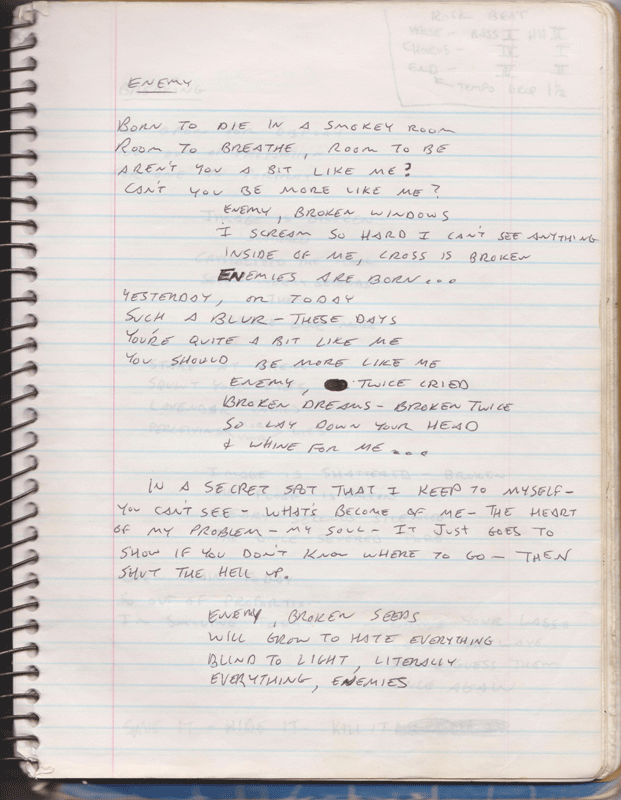 ENEMY
BORN TO DIE IN A SMOKEY ROOM
ROOM TO BREATHE, ROOM TO BE
AREN'T YOU A BIT LIKE ME?
CAN'T YOU BE MORE LIKE ME?
ENEMY, BROKEN WINDOWS
I SCREAM SO HARD I CAN'T SEE ANYTHING
INSIDE OF ME, CROSS IS BROKEN
ENEMIES ARE BORN...
YESTERDAY, OR TODAY
SUCH A BLUR - THESE DAYS
YOU'RE QUITE A BIT LIKE ME
YOU SHOULD BE MORE LIKE ME
ENEMY, TWICE CRIED
BROKEN DREAMS - BROKEN TWICE
SO LAY DOWN YOUR HEAD
& WHINE FOR ME...
IN A SECRET SPOT THAT I KEEP TO MYSELF -
YOU CAN'T SEE - WHAT'S BECOME OF ME - THE HEART
OF MY PROBLEM - MY SOUL - IT JUST GOES TO
SHOW IF YOU DON'T KNOW WHERE TO GO - THEN
SHUT THE HELL UP.
ENEMY, BROKEN SEEDS
WILL GROW TO HATE EVERYTHING
BLIND TO LIGHT, LITERALLY
EVERYTHING, ENEMIES